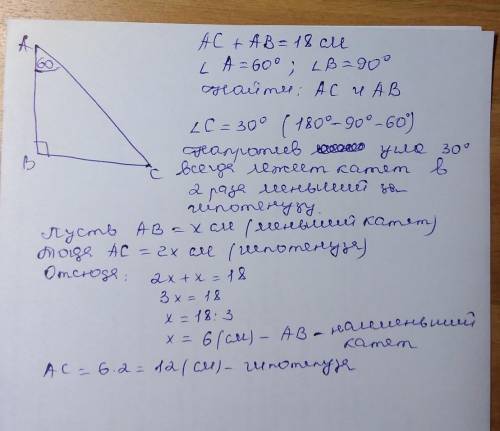 AC + AB = 18 см
∠ A = 60° ; ∠B = 90°
Найти: AC и AB
∠C = 30° (180° - 90° - 60°)
Напротив угла 30°
всегда лежит катет в
2 раза меньший за
гипотенузу.
Пусть AB = x см (меньший катет)
Тогда AC = 2x см (гипотенуза)
Отсюда: 2x + x = 18
3x = 18
x = 18 : 3
x = 6 (см) - AB - наименьший
катет
AC = 6 · 2 = 12 (см) - гипотенуза
A
60°
B
C